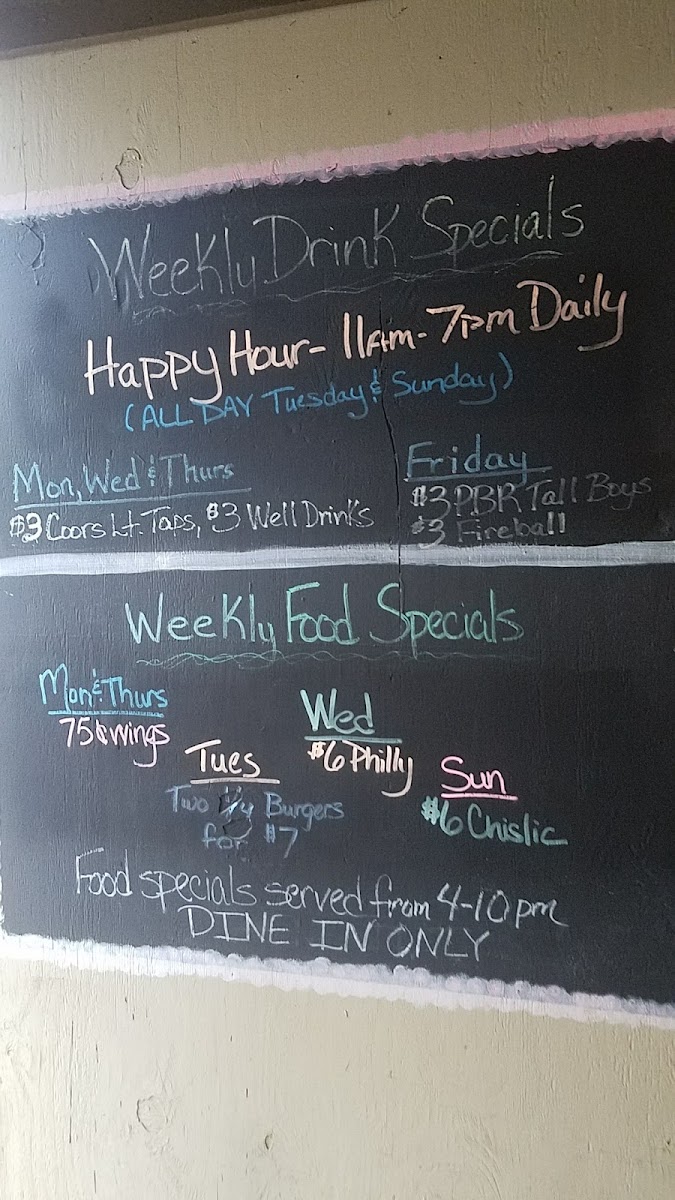 Weekly Drink Specials
Happy Hour - 11am - 7pm Daily
(ALL DAY Tuesday & Sunday)
Mon, Wed & Thurs
$3 Coors Lt. Taps, $3 Well Drinks
Friday
$3 PBR Tall Boys
$3 Fireball
Weekly Food Specials
Mon & Thurs
75¢ wings
Tues
Two 1/4 Burgers
for $7
Wed
$6 Philly
Sun
$6 Chislic
Food specials served from 4-10pm
DINE IN ONLY